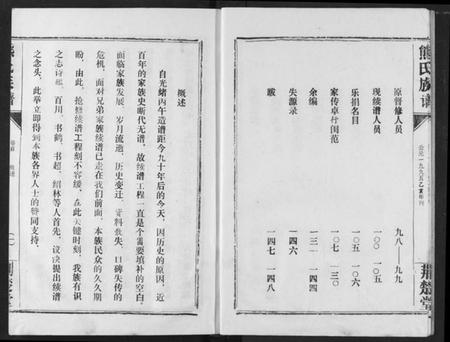 熊氏族谱
公元一九九五乙亥年刊
荆楚堂
原督修人员 九八——九九
现续谱人员 一○○ 一○五
乐捐名目 一○五 一○六
家传卓行闺范 一○七 一三○
余编 一三一 一四四
失源录 一四六
跋 一四七 一四八
概述
自光绪丙午造谱距今九十年后的今天，因历史的原因，近
百年的家族史断代无谱。故续谱工程一直是个需要填补的空白。
面临家族发展，岁月流逝，历史变迁，资料散失，口碑失传的
危机，面对兄弟家族续谱已走在我们前面，本族民众的久久期
盼，由此，抢修续谱工程刻不容缓。在此关键时刻，我族有识
之志诗、百川、书鹤、书超、绍林等人首先，议决提出续谱
之念头，此举立即得到本族各界人士的赞同支持。